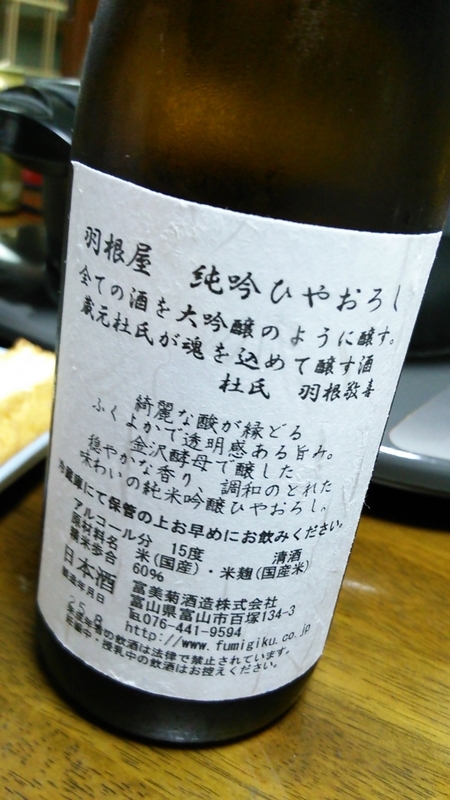 羽根屋　純吟ひやおろし
全ての酒を大吟醸のように醸す。
蔵元杜氏が魂を込めて醸す酒
杜氏　羽根敬喜
綺麗な酸が縁どる
ふくよかで透明感ある旨み。
金沢酵母で醸した
穏やかな香り、調和のとれた
味わいの純米吟醸ひやおろし。
冷蔵庫にて保管の上お早めにお飲みください。
アルコール分　15度　清酒
原材料名　米(国産)・米麹(国産米)
精米歩合　60%
日本酒　富美菊酒造株式会社
富山県富山市百塚134-3
℡076-441-9594
製造年月日
http://www.fumigiku.co.jp
未成年者の飲酒は法律で禁止されています。
妊娠中・授乳中の飲酒はお控えください。